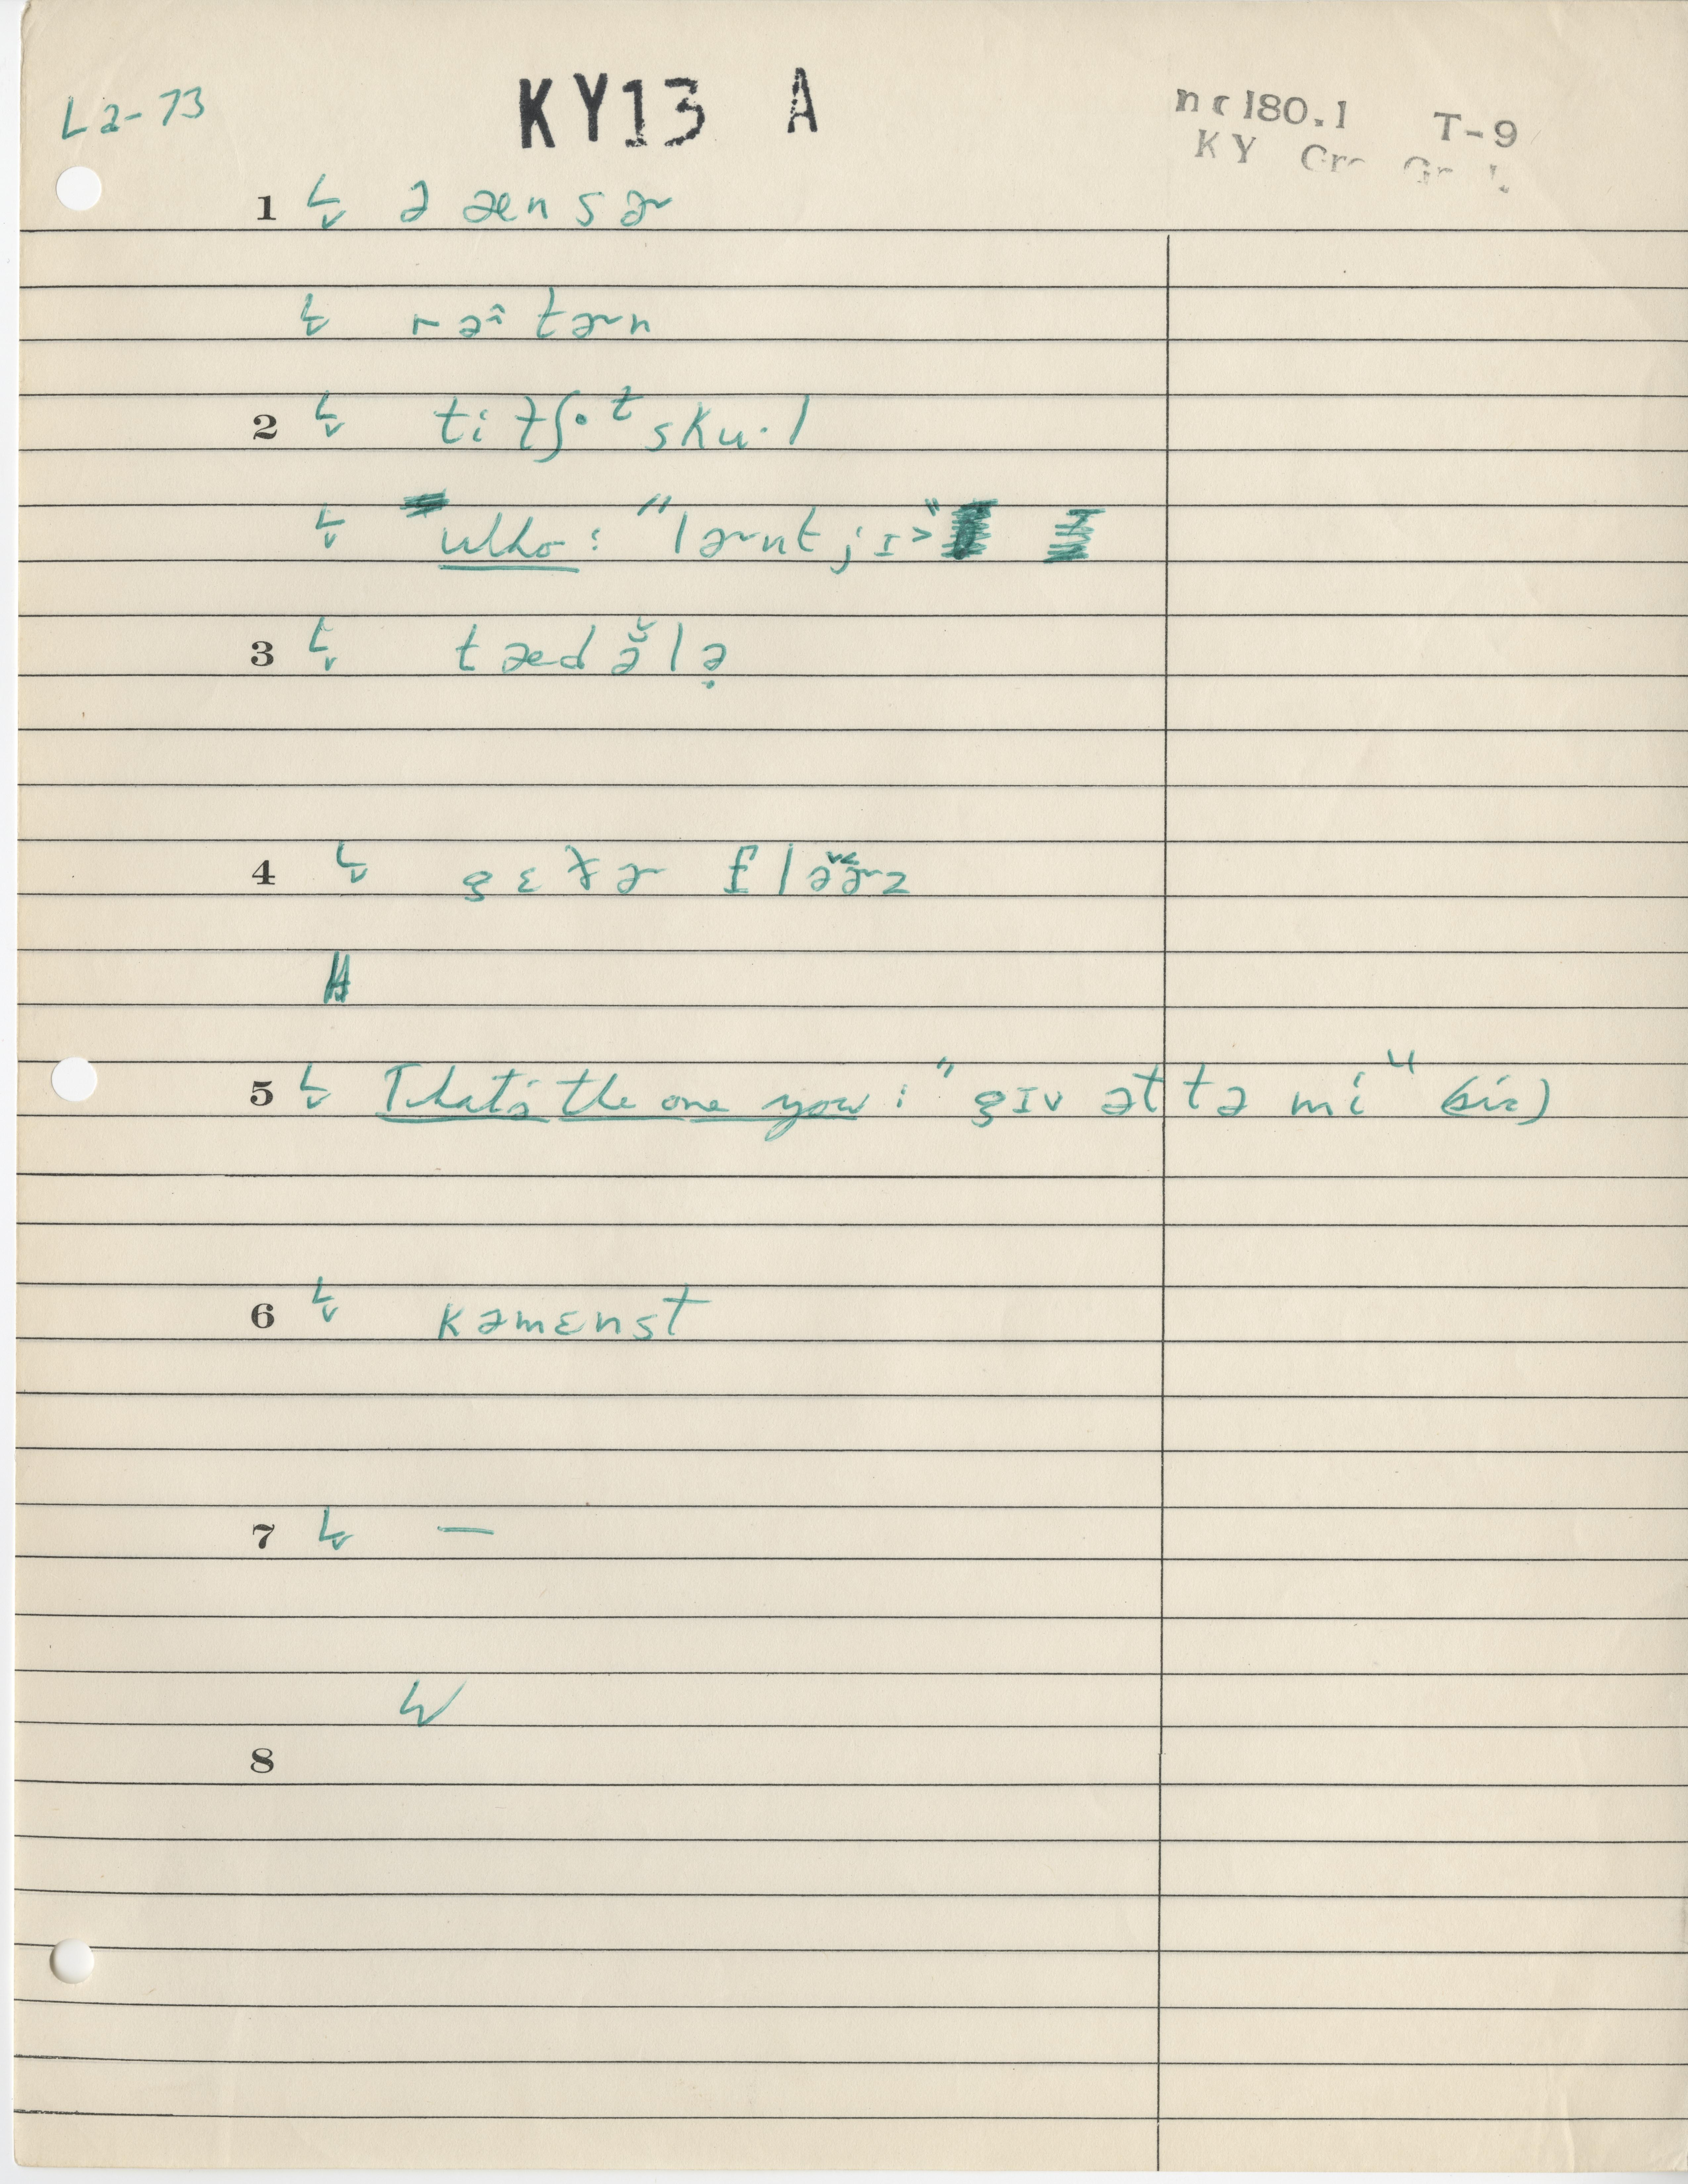 La-73
KY13 A
nc180.1 T-9
KY Gre Gr
1 ə ænsɚ
rəi tɚn
2 ti tʃ· ᵗ sku·l
who: "lɚnt jɪ>"
3 t æd ə̆ l ə̣
4 gɛt̬ɚ flə̆ɚ̆z
5 That's the one you: "gɪv ət tə mi" (sic)
6 kəmɛnst
7 —
8